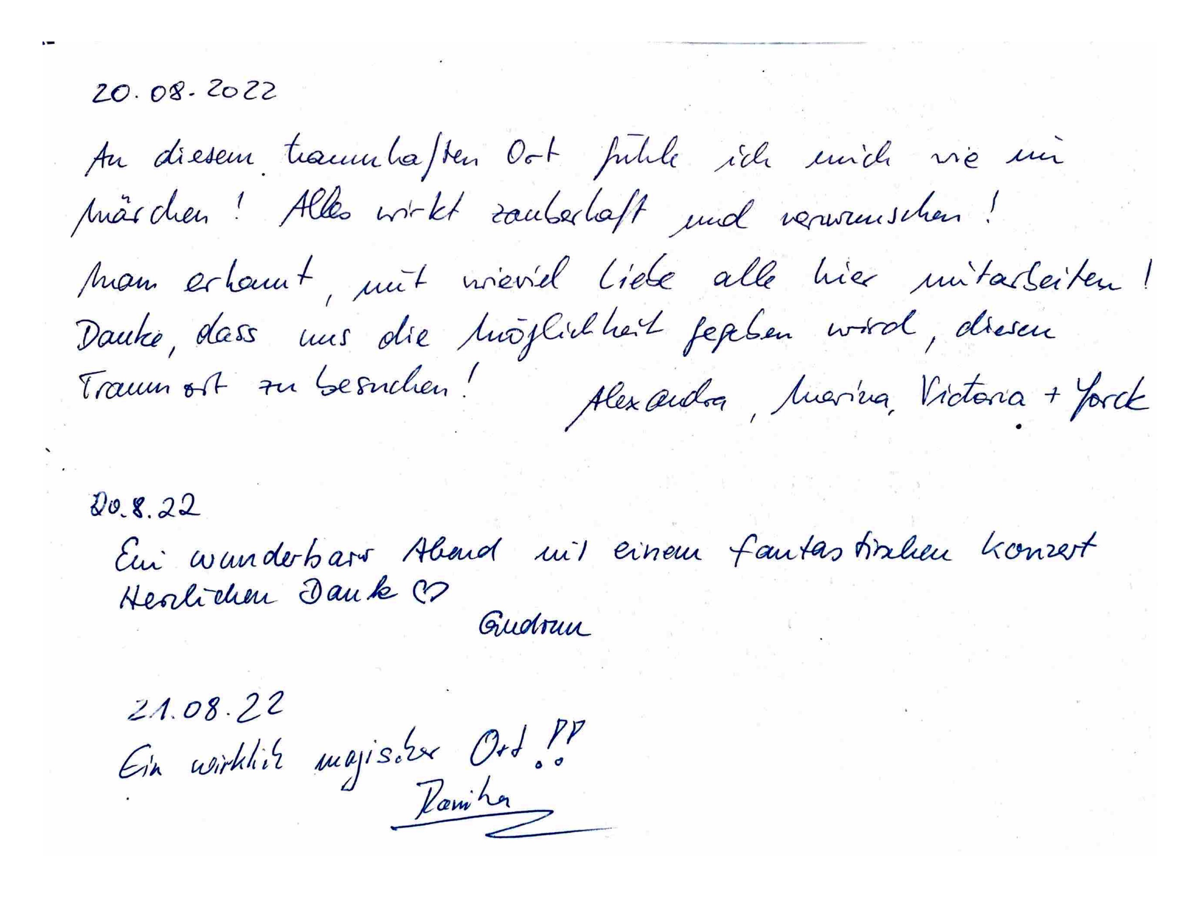 20.08.2022
An diesem traumhaften Ort fühle ich mich wie im
Märchen! Alles wirkt zauberhaft und verwunschen!
Man erkannt, mit wieviel Liebe alle hier mitarbeiten!
Danke, dass uns die Möglichkeit gegeben wird, diesen
Traumort zu besuchen!
Alexandra, Marina, Victoria + Yorck
20.8.22
Ein wunderbarer Abend mit einem fantastischen Konzert
Herzlichen Dank ♡
Gudrun
21.08.22
Ein wirklich magischer Ort!!